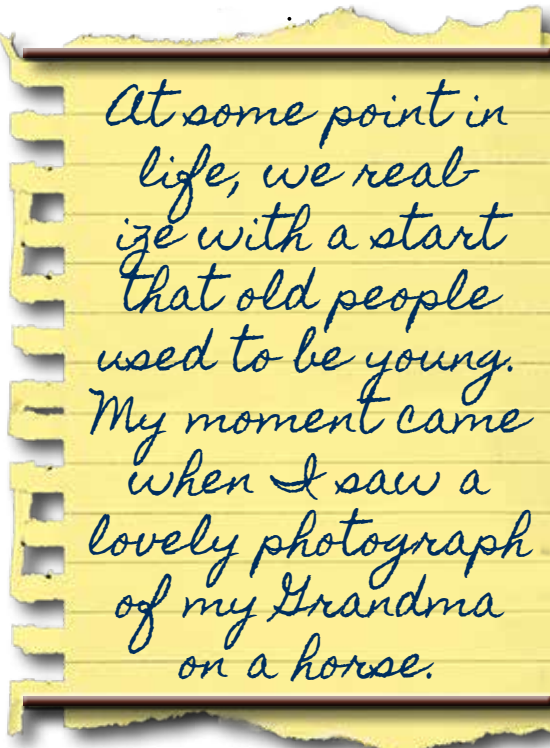 At some point in
life, we real-
ize with a start
that old people
used to be young.
My moment came
when I saw a
lovely photograph
of my Grandma
on a horse.